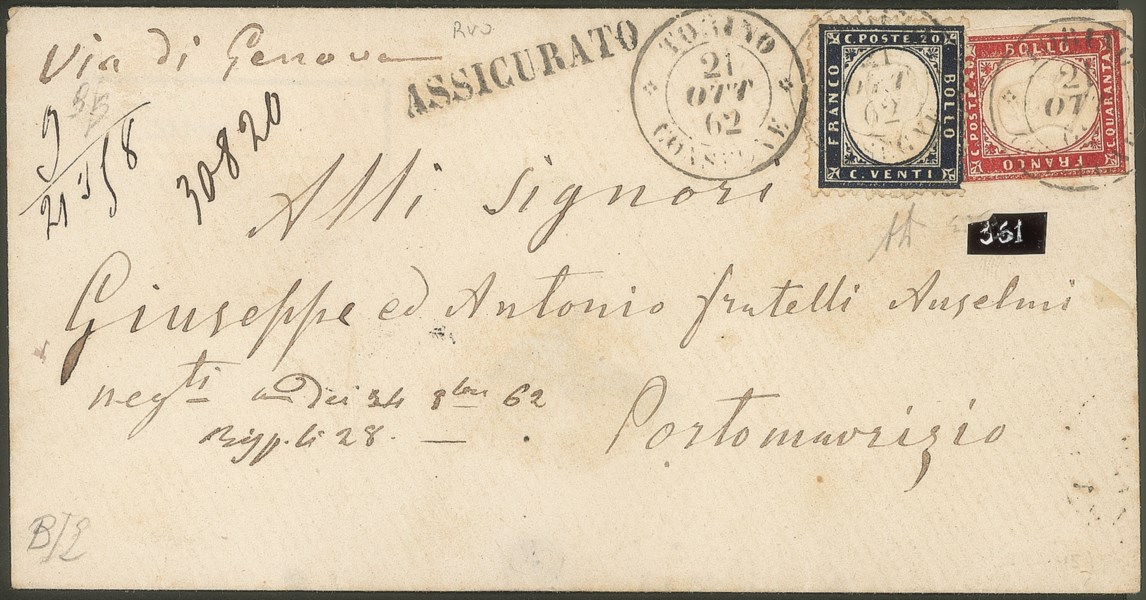 Via di Genova
RVO
ASSICURATO
TORINO
21
OTT
62
CONSEGNE
C. POSTE. 20
FRANCO
BOLLO
C. VENTI
BOLLO
C. POSTE. 40
C. QUARANTA
FRANCO
21
OTT
62
21
OT
9
21
58
30820
Alli Signori
361
Giuseppe ed Antonio fratelli Anselmi
neg.ti
34 8bre 62
28. —
Portomaurizio